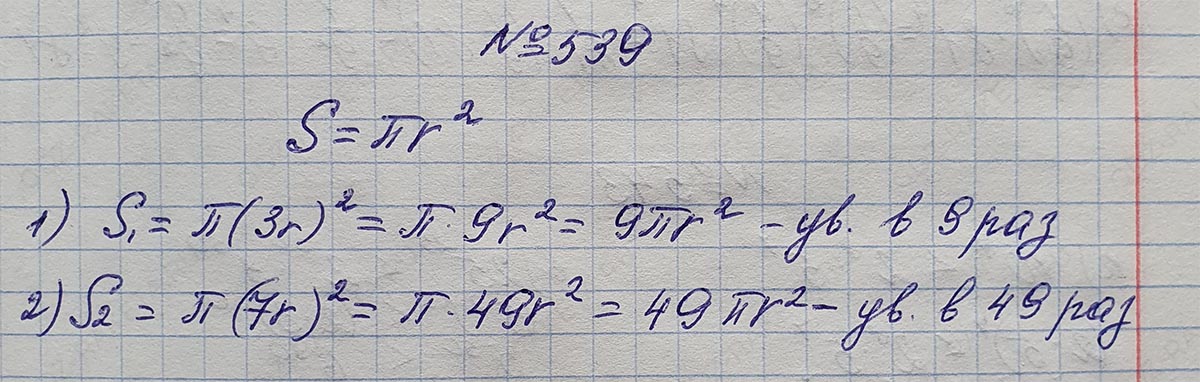 №539
S = πr²
1) S₁ = π(3r)² = π · 9r² = 9πr² – ув. в 9 раз
2) S₂ = π(7r)² = π · 49r² = 49πr² – ув. в 49 раз